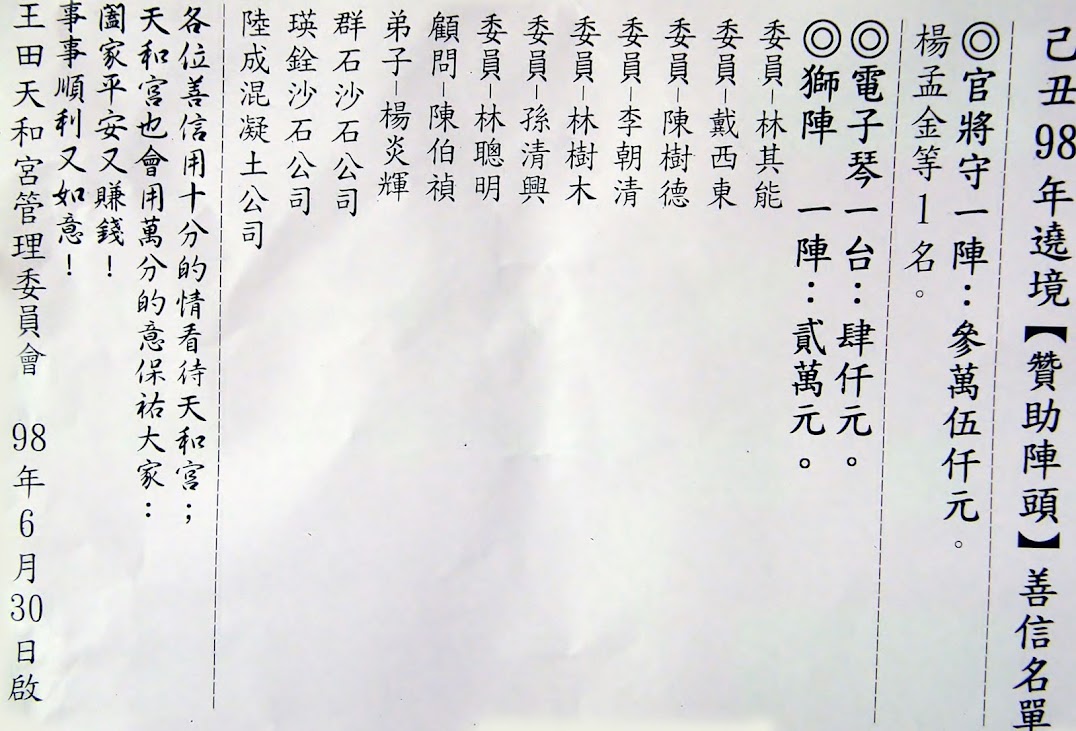 己丑98年遶境【贊助陣頭】善信名單
◎官將守一陣：參萬伍仟元。
楊孟金等1名。
◎電子琴一台：肆仟元。
◎獅陣　一陣：貳萬元。
委員－林其能
委員－戴西東
委員－陳樹德
委員－李朝清
委員－林樹木
委員－孫清興
委員－林聰明
顧問－陳伯禎
弟子－楊炎輝
群石沙石公司
瑛銓沙石公司
陸成混凝土公司
各位善信用十分的情看待天和宮；
天和宮也會用萬分的意保祐大家：
闔家平安又賺錢！
事事順利又如意！
王田天和宮管理委員會　98年6月30日啟